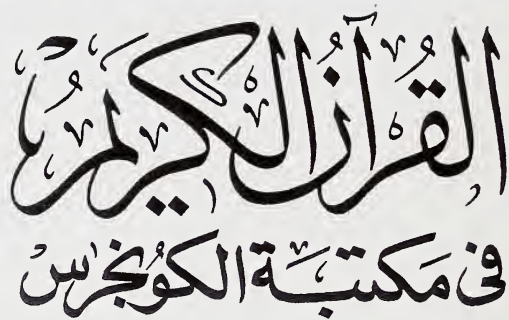 القُرآنُ الكَرِيمُ
فى مَكتَبَة الكوُنجرِس